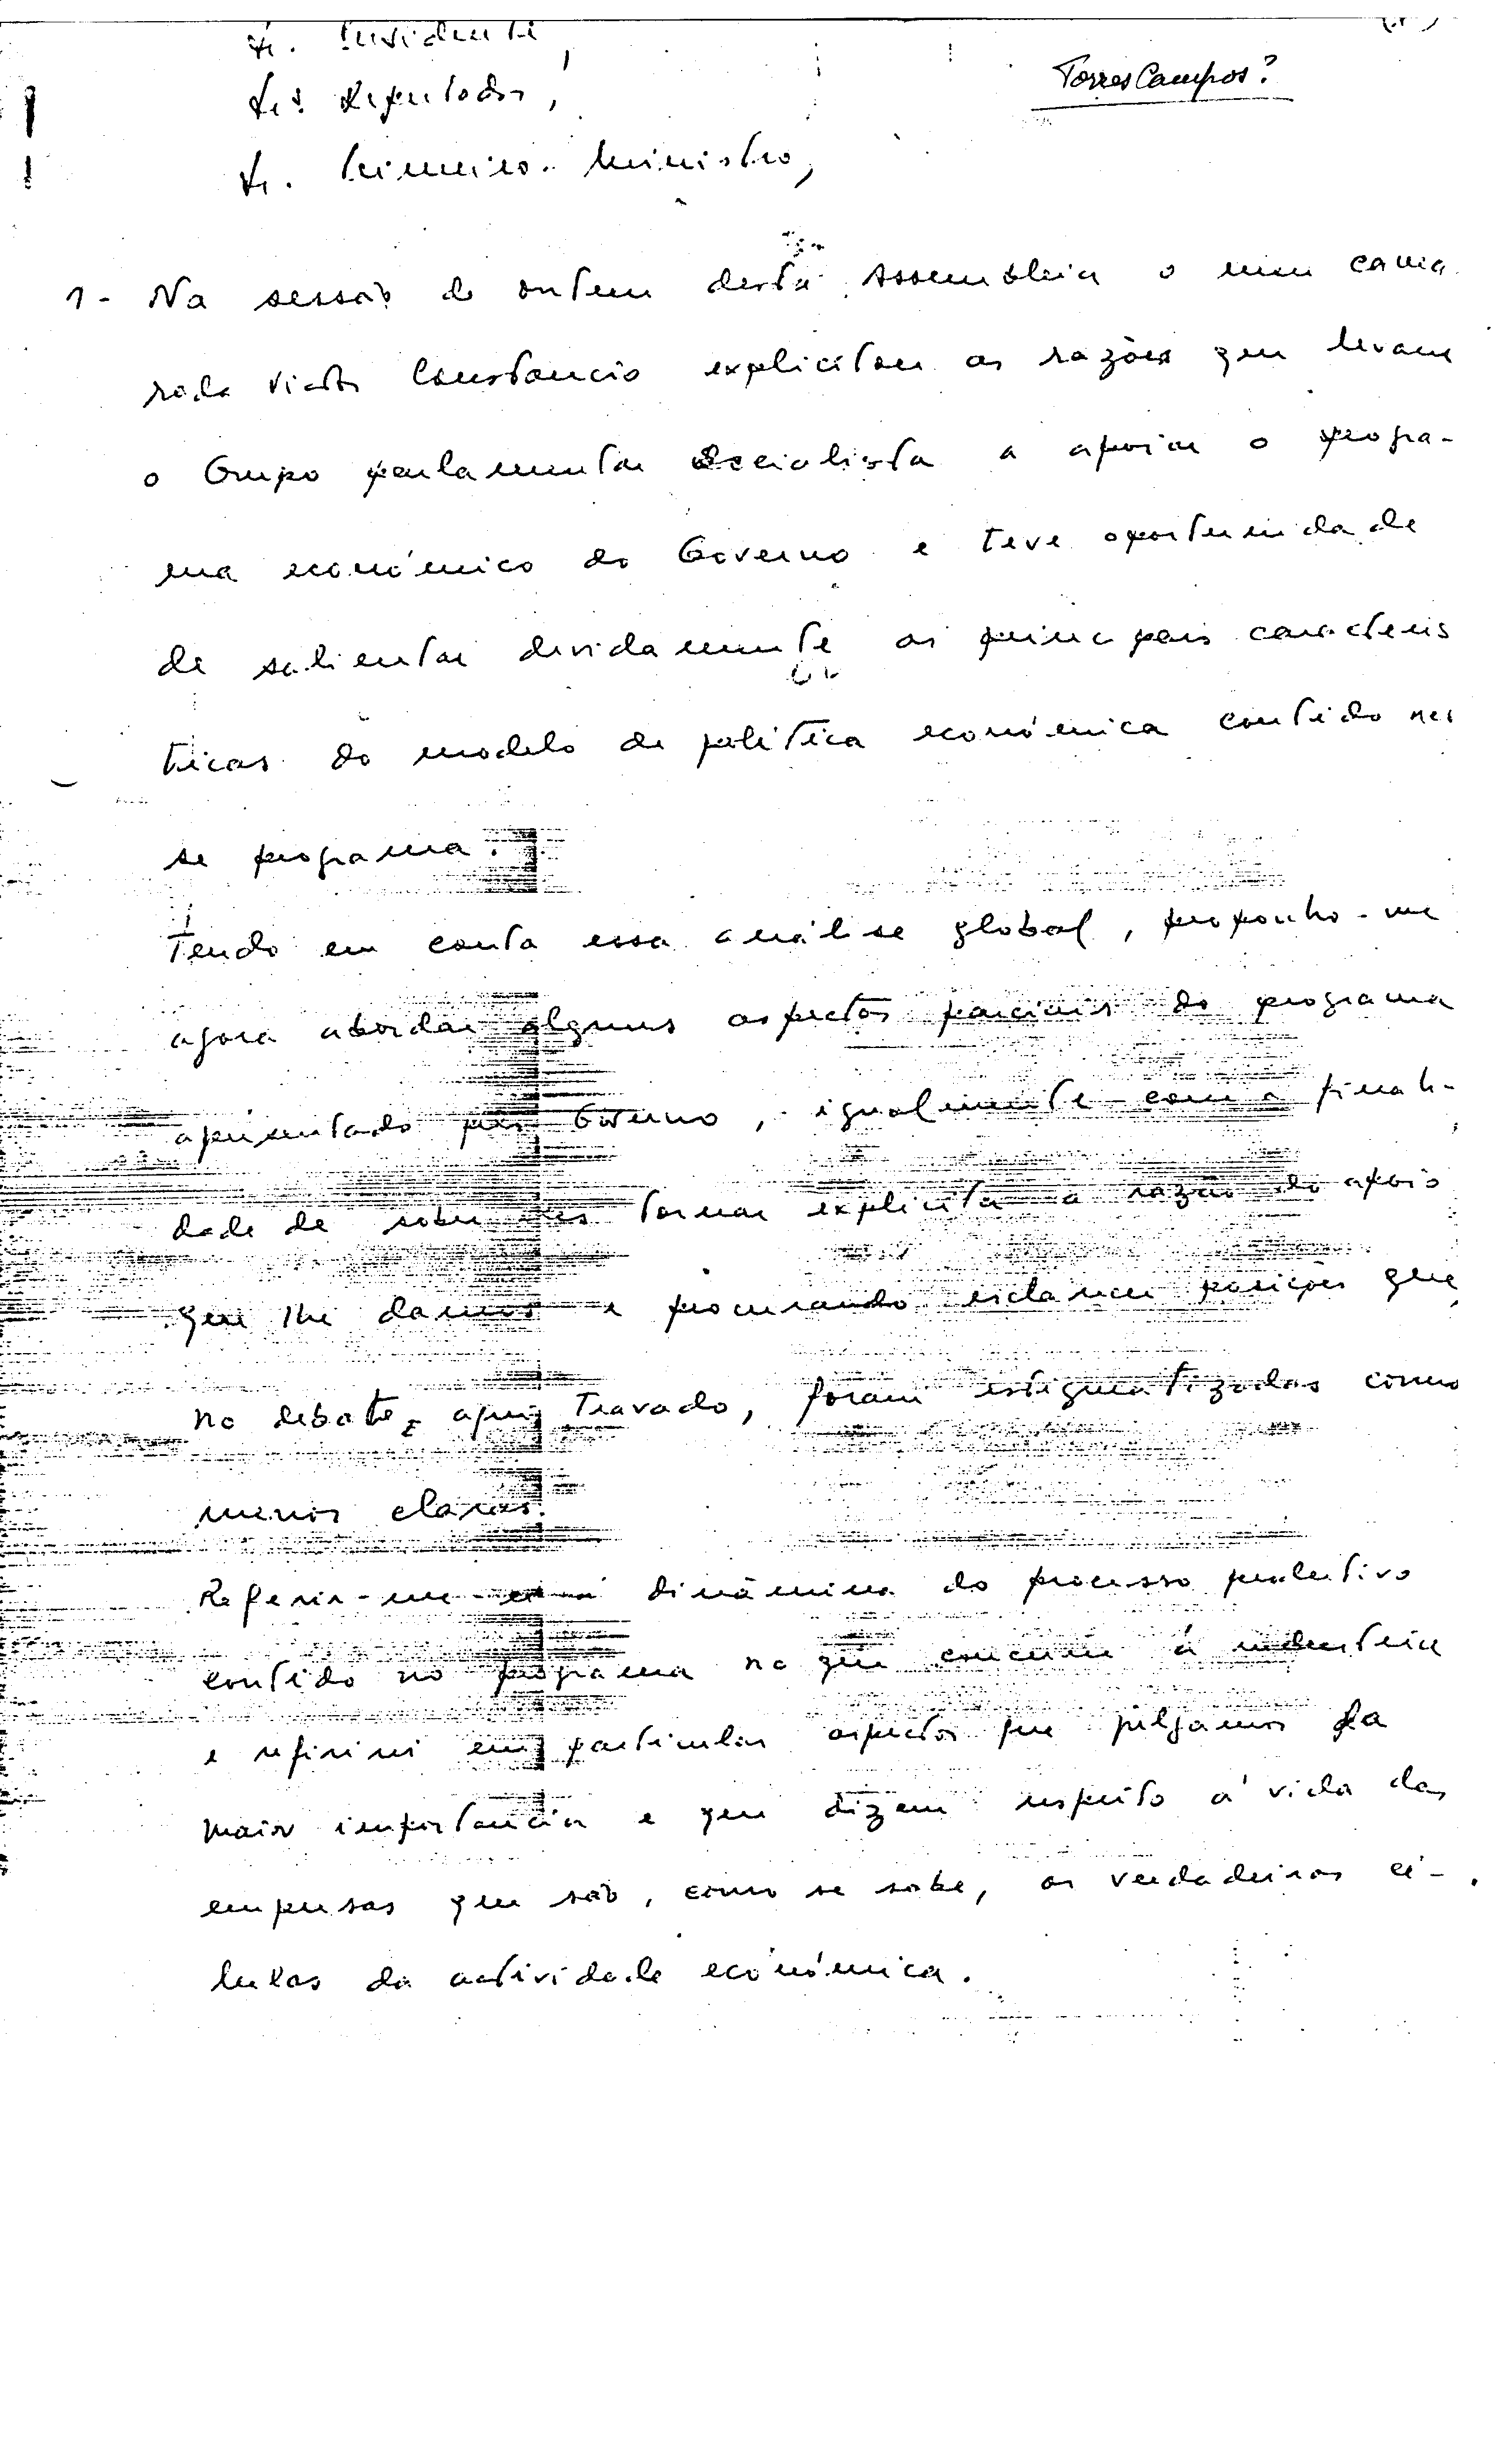 Sr. Presidente,
Torres Campos?
Srs Deputados,
Sr. Primeiro-Ministro,
1- Na sessão de ontem desta Assembleia o meu cama
rada Victor Constancio explicitou as razões que levam
o Grupo parlamentar Socialista a apoiar o progra-
ma económico do Governo e teve oportunidade
de salientar devidamente as principais caracteris
ticas do modelo de politica económica contido nes
se programa.
Tendo em conta essa análise global, proponho-me
agora abordar alguns aspectos parciais do programa
apresentado pelo Governo, igualmente com a finali-
dade de sobre eles tornar explicita a razão do apoio
que lhe damos e procurando esclarecer posições que,
no debate, aqui travado, foram estigmatizadas como
menos claras.
Referir-me-ei á dinâmica do processo produtivo
contido no programa no que concerne á industria
e referirei em particular aspectos que julgamos da
maior importancia e que dizem respeito á vida das
empresas que são, como se sabe, as verdadeiras cé-
lulas da actividade económica.